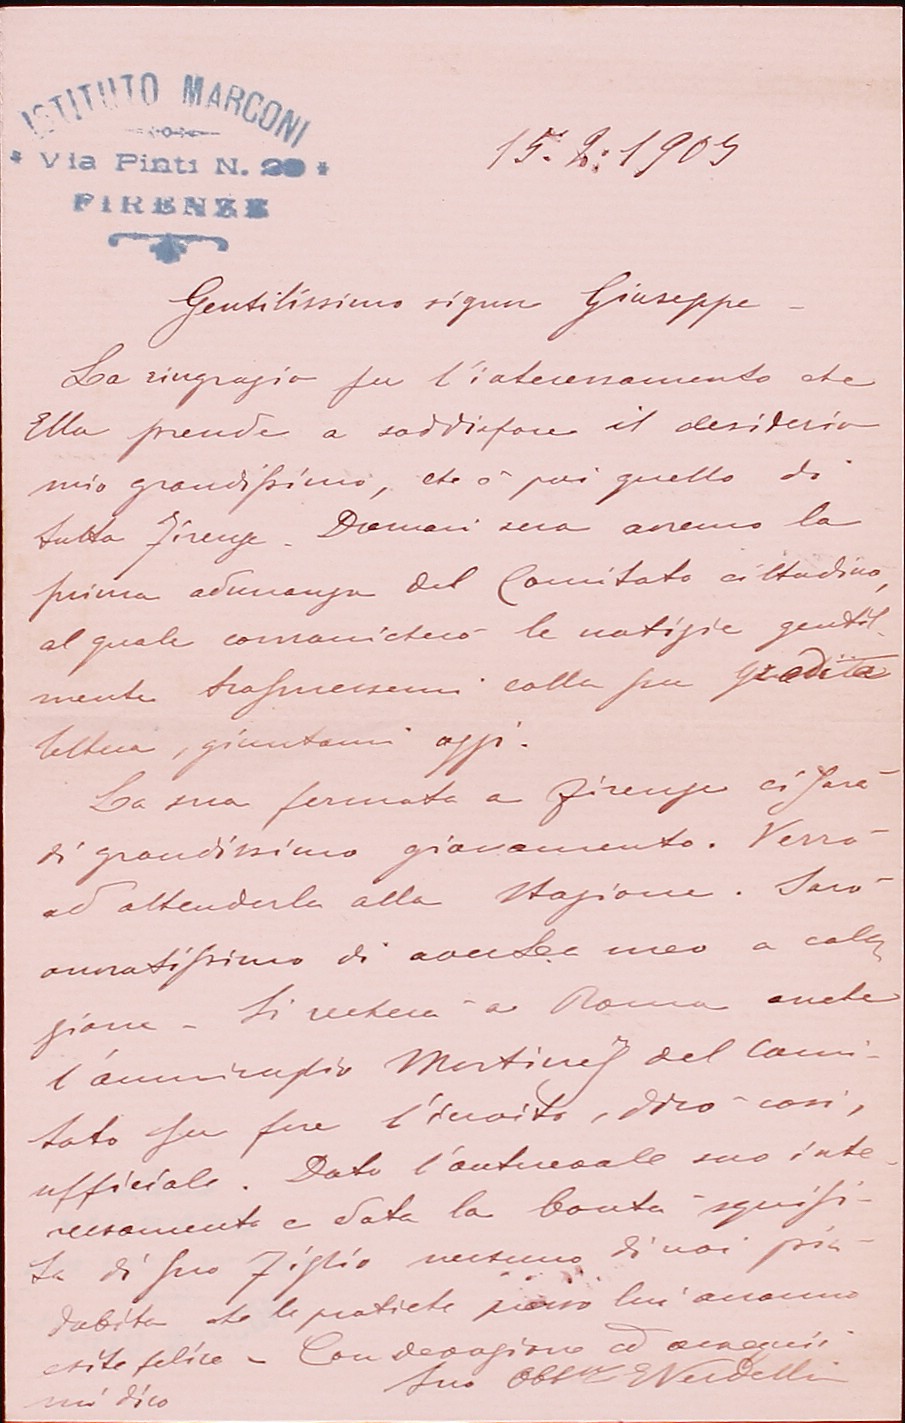 ISTITUTO MARCONI
* Via Pinti N. 29 *
FIRENZE
15. 2. 1903
Gentilissimo signor Giuseppe –
La ringrazio per l'interessamento che
Ella prende a soddisfare il desiderio
mio grandissimo, che è poi quello di
tutta Firenze – Domani sera avremo la
prima adunanza del Comitato cittadino,
al quale comunicherò le notizie gentil-
mente trasmessemi colla sua gradita
lettera, giuntami oggi.
La sua fermata a Firenze ci sarà
di grandissimo giovamento. Verrò
ad attenderla alla stazione. Sarò
onoratissimo di averLa meco a cola
zione – Si recherà a Roma anche
l'ammiraglio Martinez del Comi-
tato per fare l'invito, dirò così,
ufficiale. Dato l'autorevole suo inte-
ressamento e data la bontà squisi-
ta di suo Figlio nessuno di noi più
dubita che le pratiche presso lui avranno
esito felice – Con devozione ed ossequii
mi dico
Suo Obb.mo E Verdelli